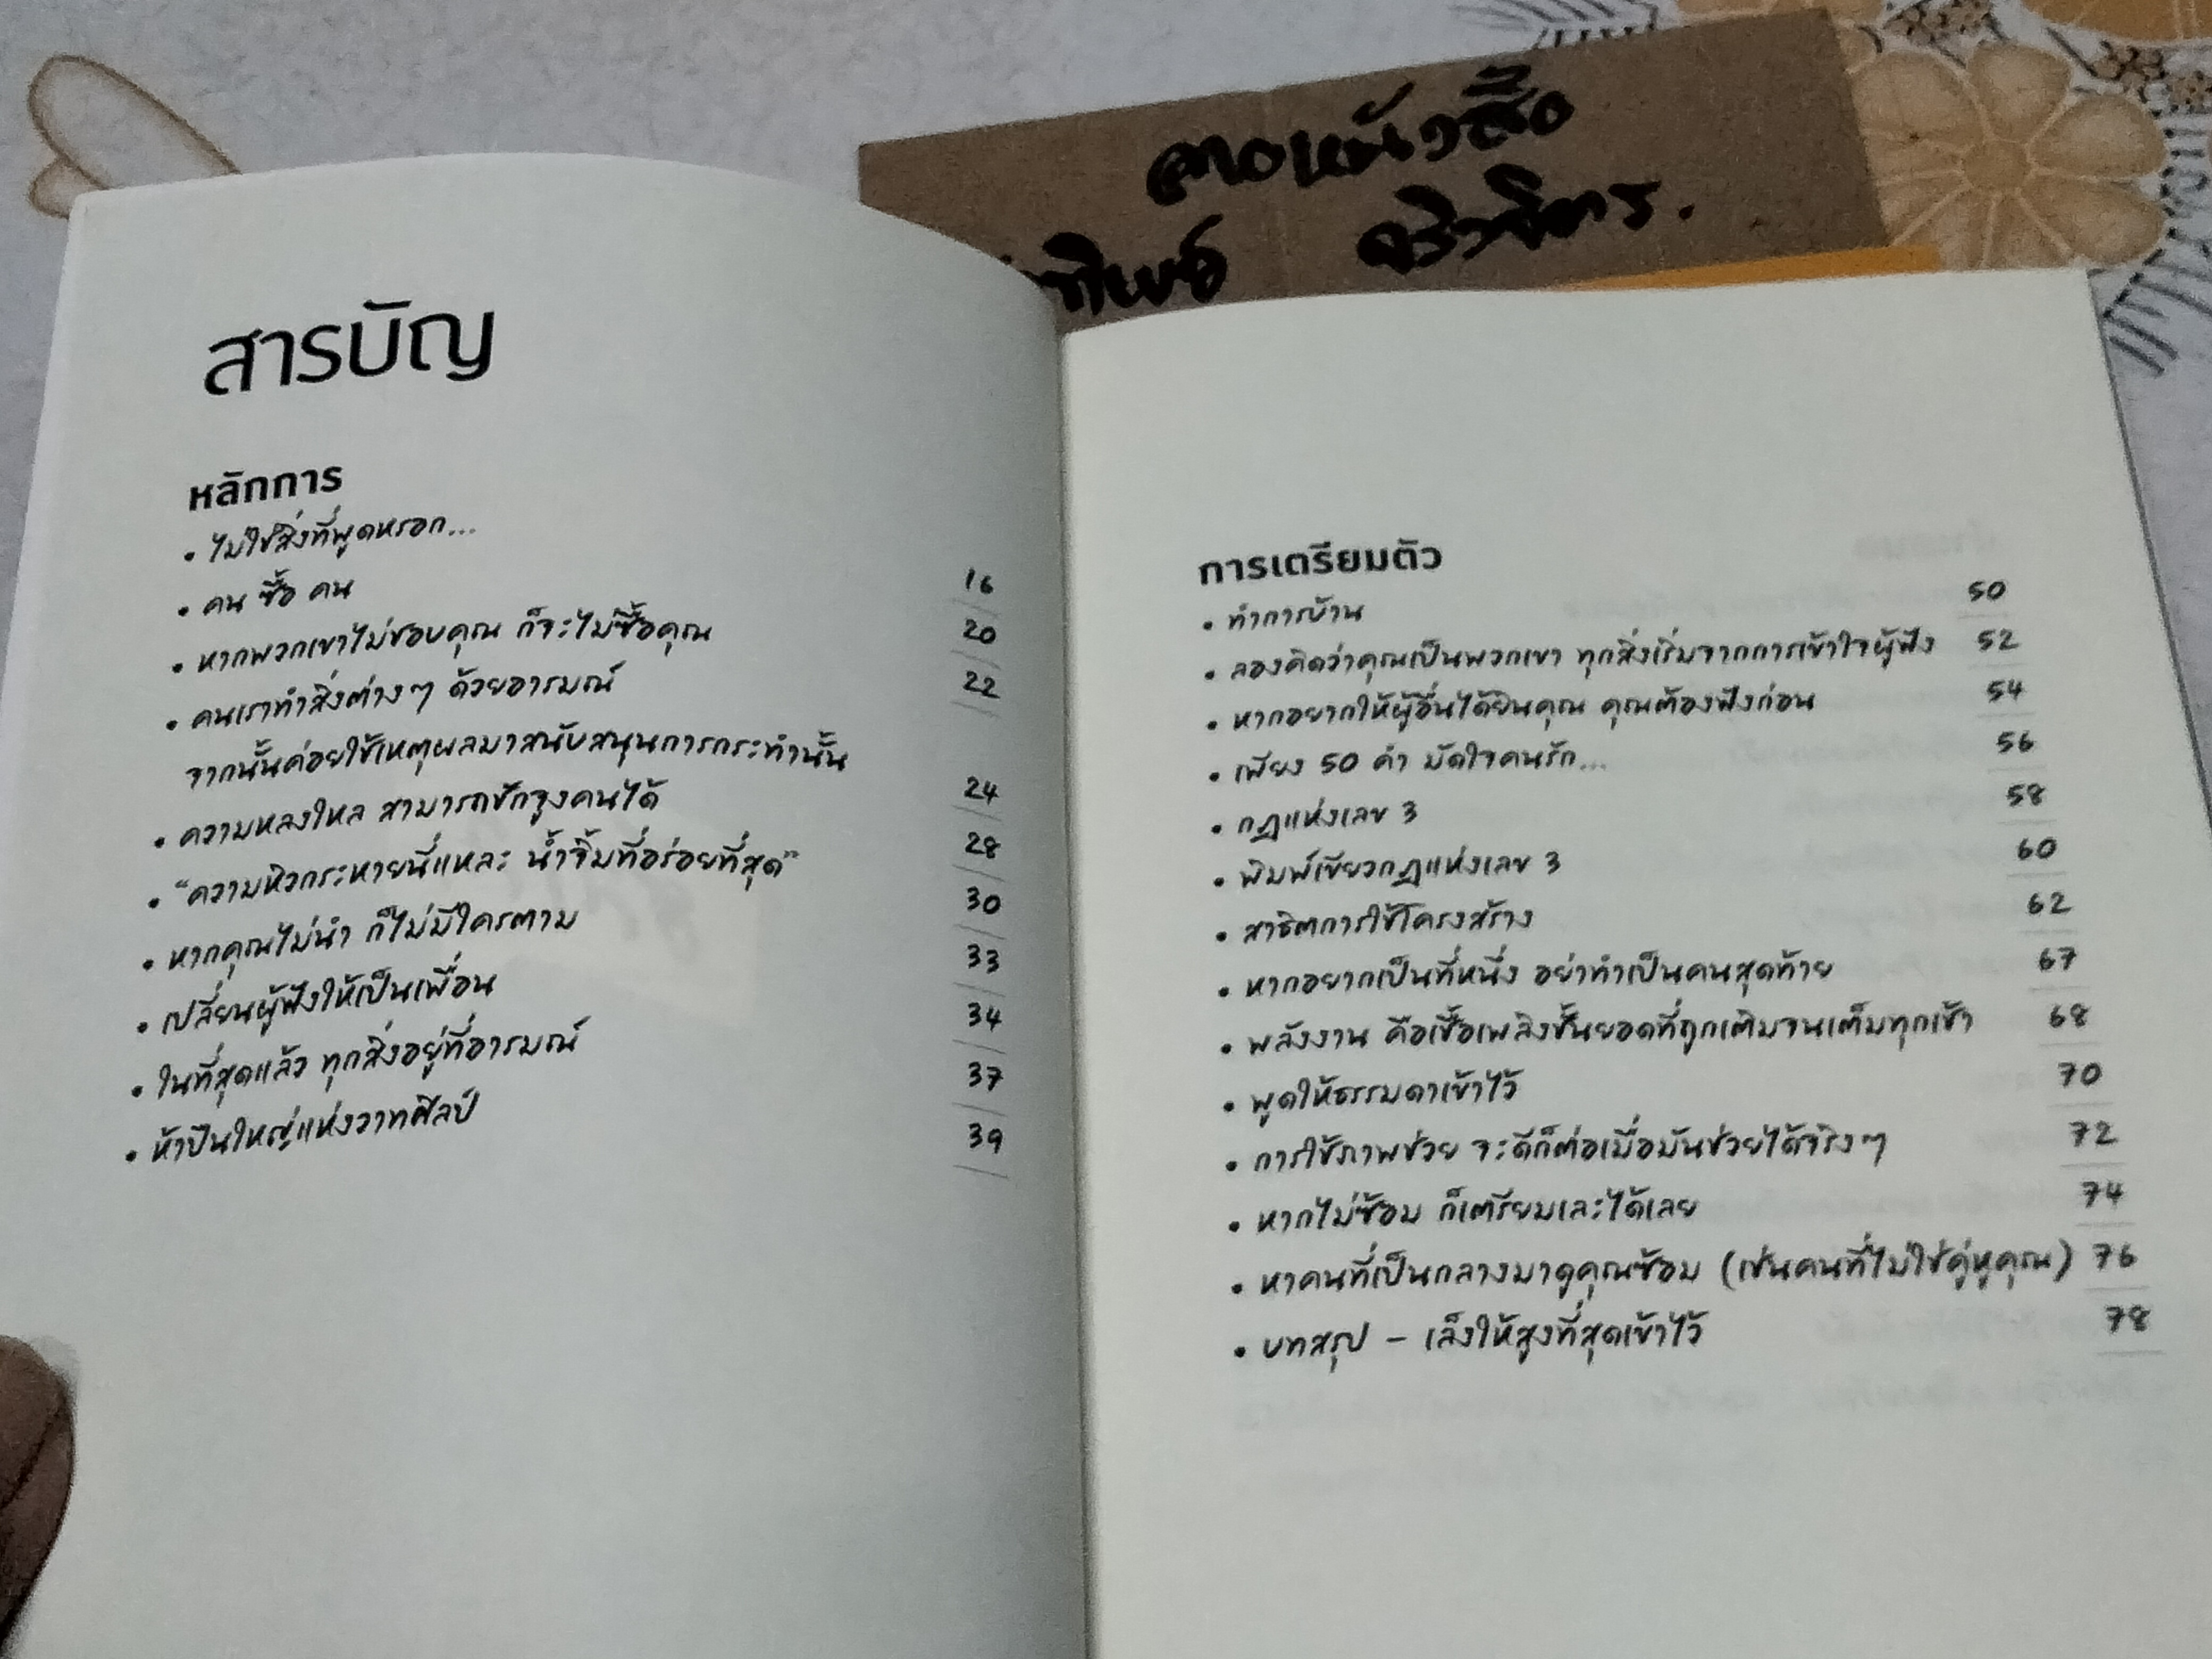 สารบัญ
หลักการ
• ไม่ใช่สิ่งที่พูดหรอก... 16
• คน ซื้อ คน 20
• หากพวกเขาไม่ชอบคุณ ก็จะไม่ซื้อคุณ 22
• คนเราทำสิ่งต่างๆ ด้วยอารมณ์
จากนั้นค่อยใช้เหตุผลมาสนับสนุนการกระทำนั้น 24
• ความหลงใหล สามารถชักจูงคนได้ 28
• "ความหิวกระหายนี่แหละ น้ำจิ้มที่อร่อยที่สุด" 30
• หากคุณไม่นำ ก็ไม่มีใครตาม 33
• เปลี่ยนผู้ฟังให้เป็นเพื่อน 34
• ในที่สุดแล้ว ทุกสิ่งอยู่ที่อารมณ์ 37
• ห้าปืนใหญ่แห่งวาทศิลป์ 39
การเตรียมตัว
• ทำการบ้าน 50
• ลองคิดว่าคุณเป็นพวกเขา ทุกสิ่งเริ่มจากการเข้าใจผู้ฟัง 52
• หากอยากให้ผู้อื่นได้ยินคุณ คุณต้องฟังก่อน 54
• เพียง 50 คำ มัดใจคนรัก... 56
• กฎแห่งเลข 3 58
• พิมพ์เขียวกฎแห่งเลข 3 60
• สาธิตการใช้โครงสร้าง 62
• หากอยากเป็นที่หนึ่ง อย่าทำเป็นคนสุดท้าย 67
• พลังงาน คือเชื้อเพลิงชั้นยอดที่ถูกเติมจนเต็มทุกเช้า 68
• พูดให้ธรรมดาเข้าไว้ 70
• การใช้ภาพช่วย จะดีก็ต่อเมื่อมันช่วยได้จริงๆ 72
• หากไม่ซ้อม ก็เตรียมเละได้เลย 74
• หาคนที่เป็นกลางมาดูคุณซ้อม (เช่นคนที่ไม่ใช่คู่หูคุณ) 76
• บทสรุป – เล็งให้สูงที่สุดเข้าไว้ 78